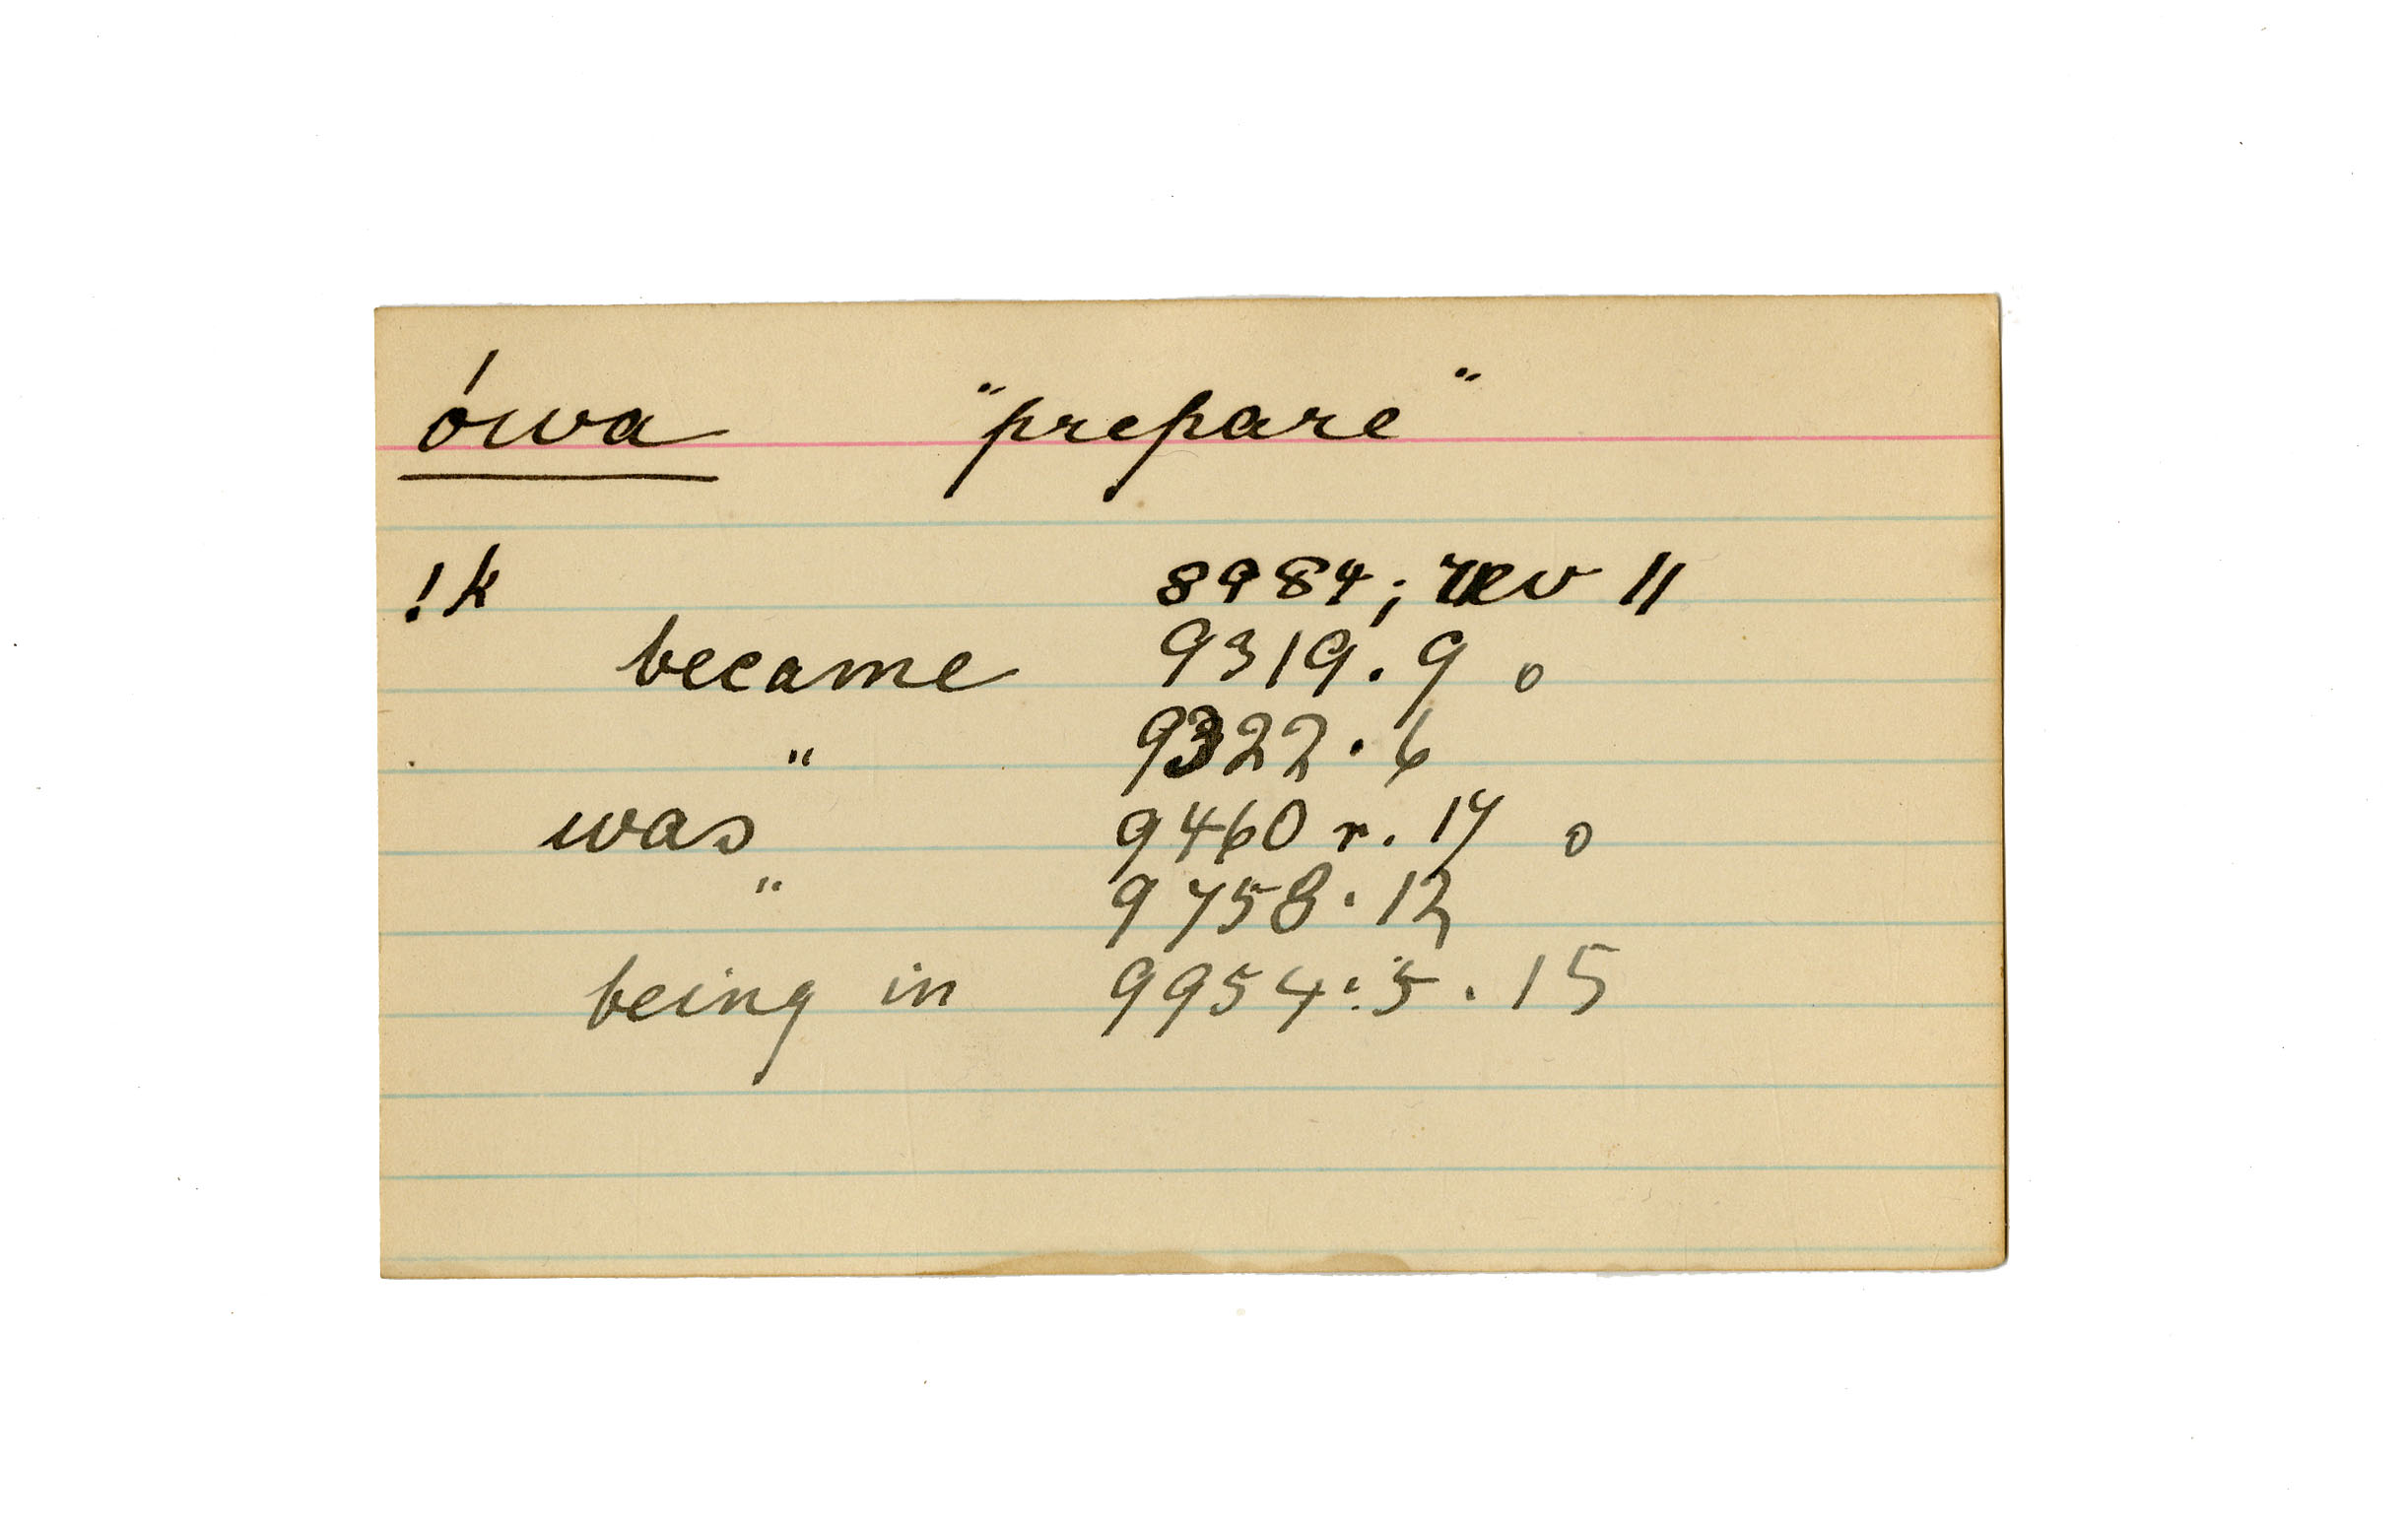 ówa "prepare"
!k 8984; rev 11
became 9319.9 o
" 9322.6
was 9460 r. 17 o
" 9758.12
being in 9954:5.15